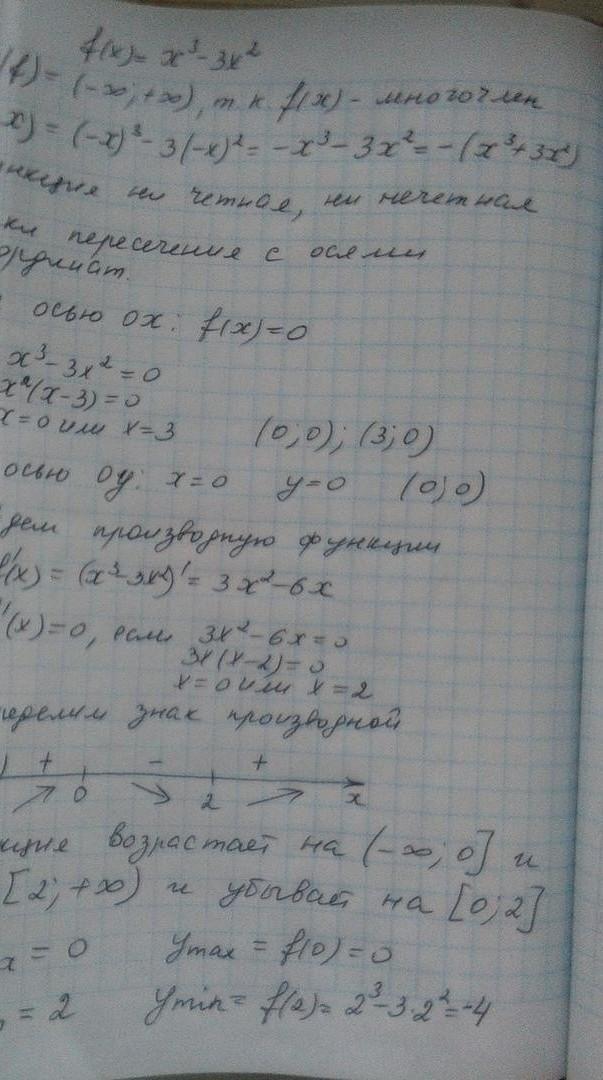 f(x)= x³-3x²
(f)= (-∞; +∞), т.к. f(x) - многочлен
x) = (-x)³ - 3(-x)² = -x³ - 3x² = -(x³+3x²)
нкция ни четная, ни нечетная
ки пересечения с осями
ординат.
осью ox: f(x)=0
x³-3x²=0
x²(x-3)=0
x=0 или x=3 (0;0); (3;0)
осью oy: x=0 y=0 (0;0)
дем производную функции
f'(x) = (x³-3x²)' = 3x²-6x
'(x)=0, если 3x²-6x=0
3x(x-2)=0
x=0 или x=2
ределим знак производной
) + - +
0 2 x
кция возрастает на (-∞; 0] и
[2; +∞) и убывает на [0; 2]
x = 0 ymax = f(0)=0
= 2 ymin = f(2)= 2³-3·2²=-4